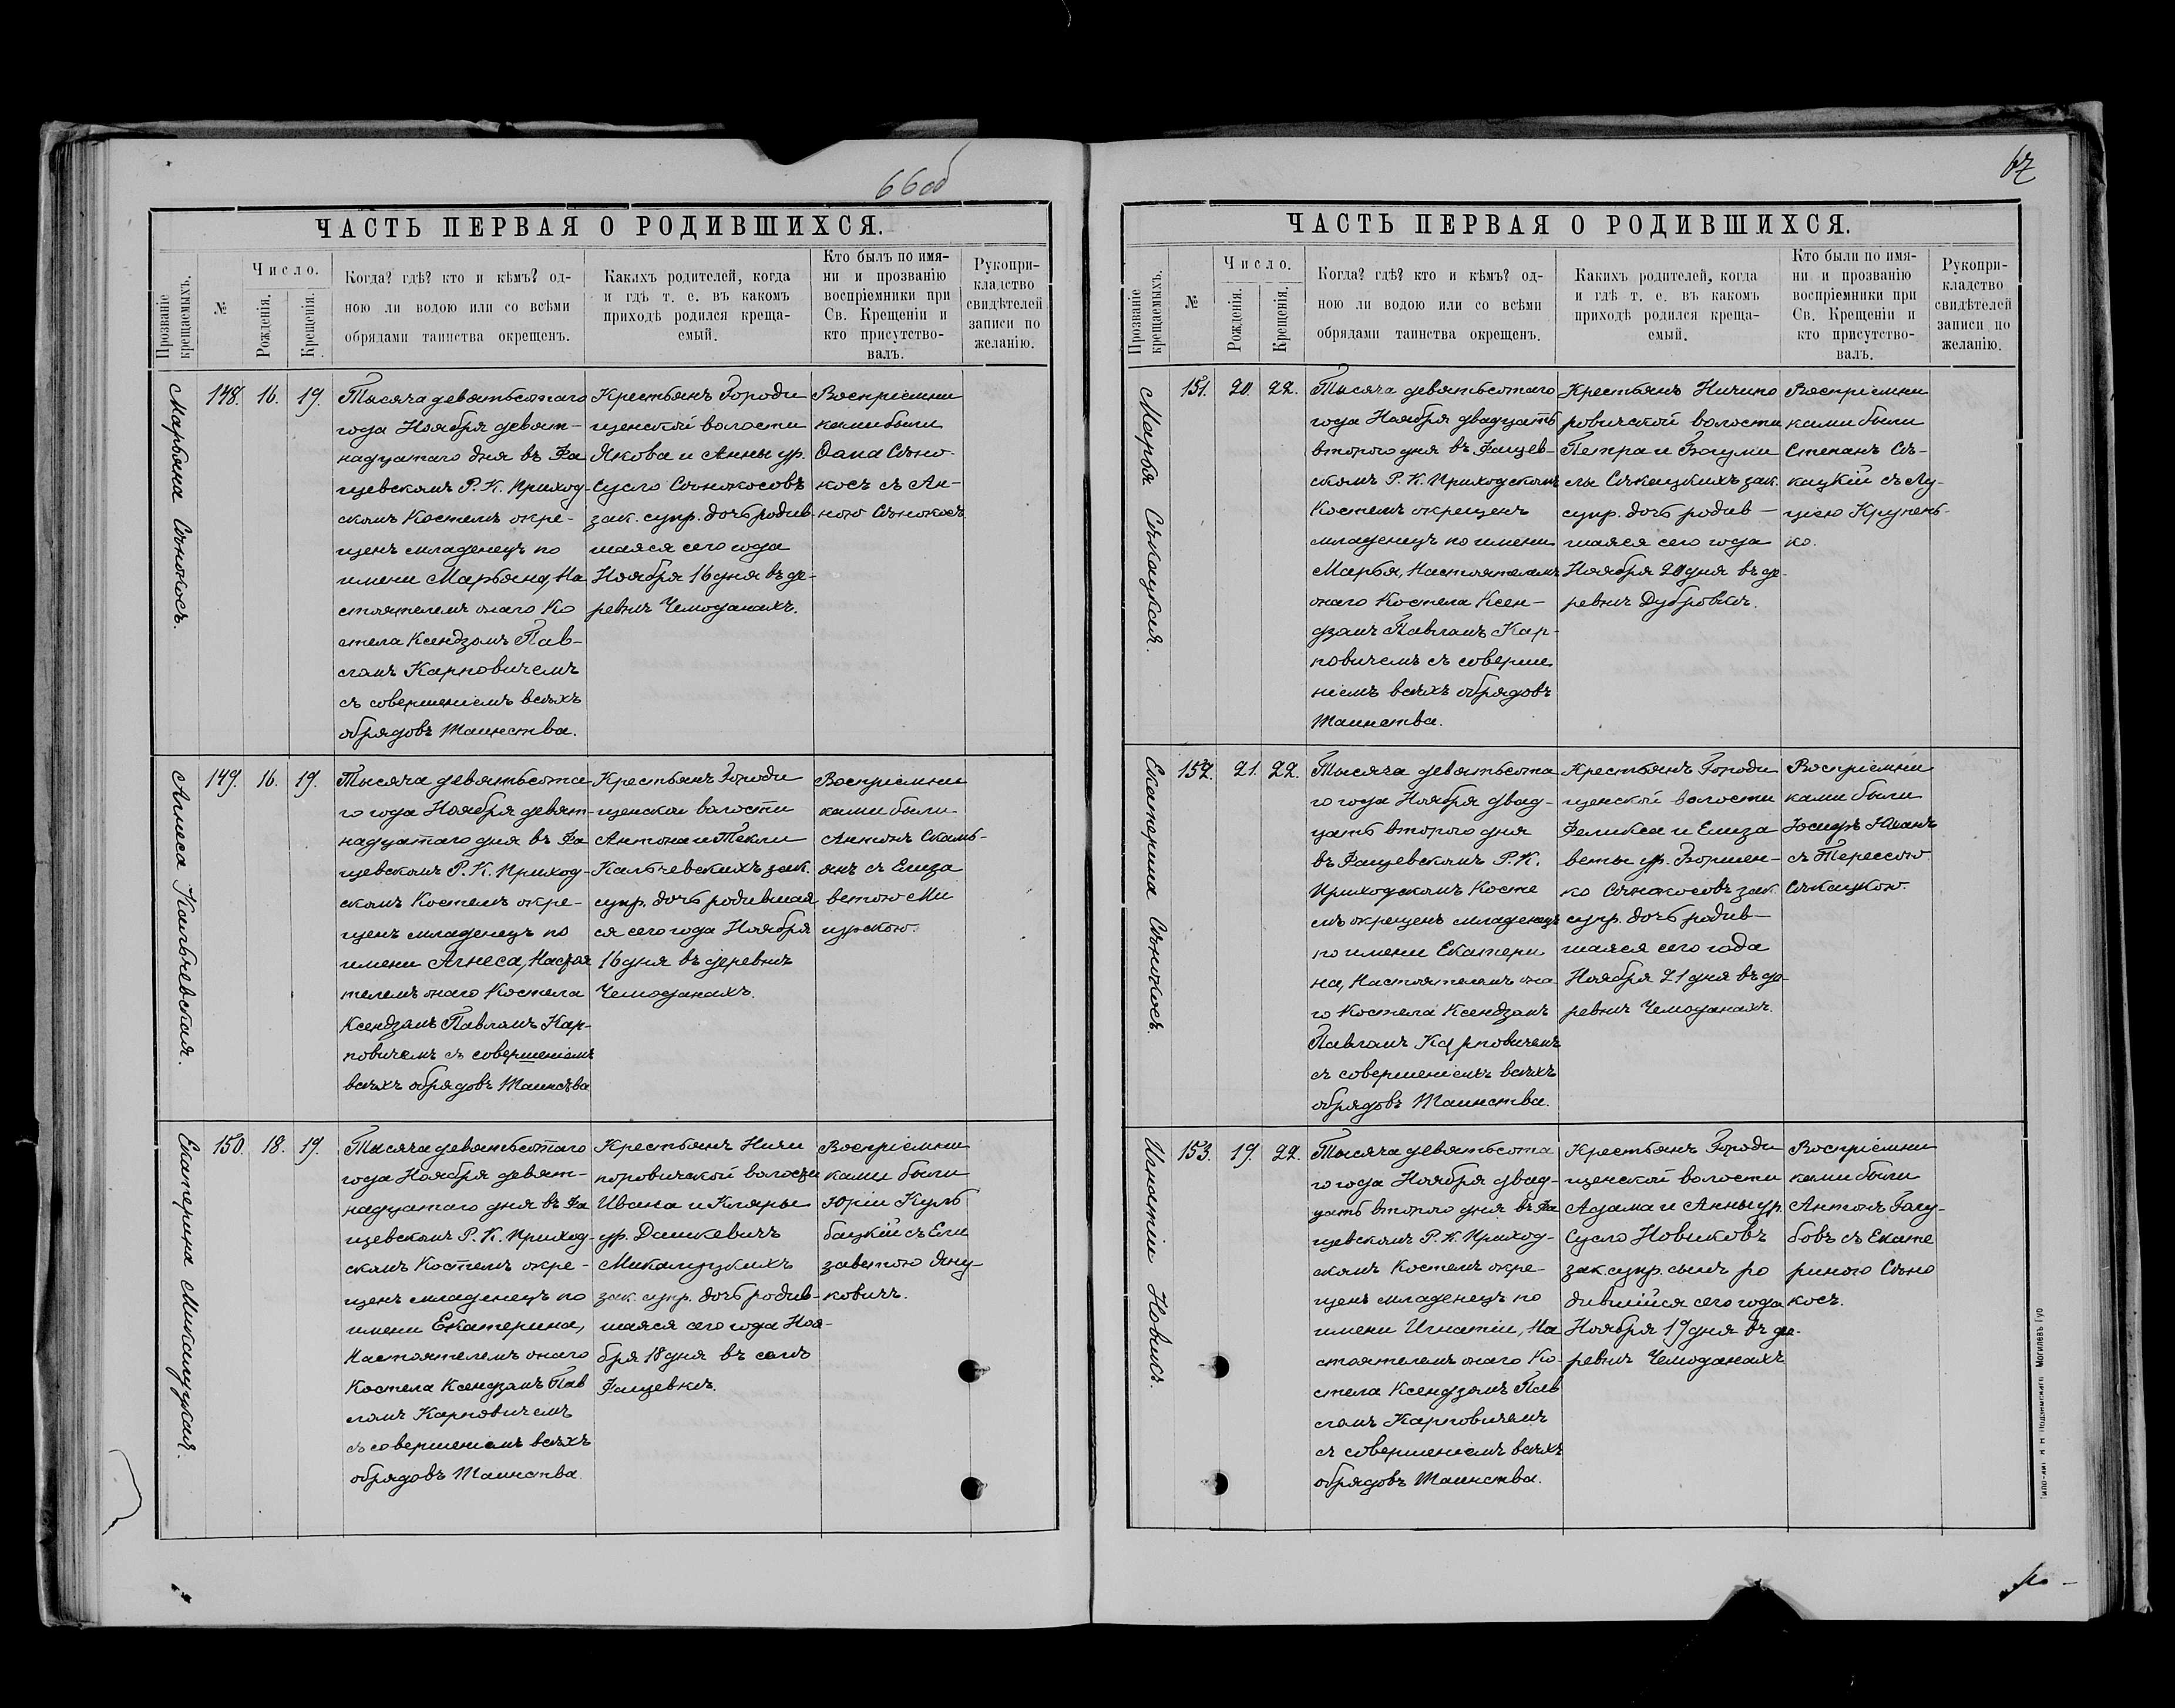 66об
ЧАСТЬ ПЕРВАЯ О РОДИВШИХСЯ.
Прозваніе
крещаемыхъ.
№
Число.
Рожденія.
Крещенія.
Когда? гдѣ? кто и кѣмъ? од-
ною ли водою или со всѣми
обрядами таинства окрещенъ.
Какихъ родителей, когда
и гдѣ т. е. въ какомъ
приходѣ родился креща-
емый.
Кто былъ по имя-
ни и прозванію
воспріемники при
Св. Крещеніи и
кто присутство-
валъ.
Рукопри-
кладство
свидѣтелей
записи по
желанію.
Марьяна Сѣнокосъ.
148. 16. 19.
Тысяча девятьсотаго
года Ноября девят-
надцатаго дня въ Фа
щевскомъ Р. К. Приход-
скомъ Костелѣ окре-
щенъ младенецъ по
имени Марьяна, На
стоятелемъ онаго Ко
стела Ксендзомъ Пав-
ломъ Карповичемъ
съ совершеніемъ всѣхъ
обрядовъ Таинства.
Крестьянъ Городи
щенской волости
Якова и Анны ур.
Сусло Сѣнокосовъ
зак. супр. дочь родив-
шаяся сего года
Ноября 16 дня въ де-
ревнѣ Чемоданахъ.
Воспріемни
ками были
Сѣно-
косъ съ Ан-
ною Сѣнокосъ
Агнеса Кальчевская.
149. 16. 19.
Тысяча девятьсота
го года Ноября девят-
надцатаго дня въ Фа
щевскомъ Р. К. Приход-
скомъ Костелѣ окре-
щенъ младенецъ по
имени Агнеса, Настоя
телемъ онаго Костела
Ксендзомъ Павломъ Кар-
повичемъ съ совершеніемъ
всѣхъ обрядовъ Таинства
Крестьянъ Городи
щенской волости
Антона и Текли
Кальчевскихъ зак.
супр. дочь родившая
ся сего года Ноября
16 дня въ деревнѣ
Чемоданахъ.
Воспріемни
ками были
Антонъ
съ Елиза
ветою
Екатерина Микалуцкая.
150. 18. 19.
Тысяча девятьсотаго
года Ноября девят-
надцатаго дня въ Фа
щевскомъ Р. К. Приход-
скомъ Костелѣ окре-
щенъ младенецъ по
имени Екатерина,
Настоятелемъ онаго
Костела Ксендзомъ Пав
ломъ Карповичемъ
съ совершеніемъ всѣхъ
обрядовъ Таинства.
Крестьянъ Ничи
поровичской волости
Ивана и Кляры
ур. Дашкевичъ
Микалуцкихъ
зак. супр. дочь родив-
шаяся сего года Ноя-
бря 18 дня въ селѣ
Фащевкѣ.
Воспріемни
ками были
Юрій Куль
бацкій съ Ели
заветою Яну
ковичъ.
67
ЧАСТЬ ПЕРВАЯ О РОДИВШИХСЯ.
Прозваніе
крещаемыхъ.
№
Число.
Рожденія.
Крещенія.
Когда? гдѣ? кто и кѣмъ? од-
ною ли водою или со всѣми
обрядами таинства окрещенъ.
Какихъ родителей, когда
и гдѣ т. е. въ какомъ
приходѣ родился креща-
емый.
Кто были по имя-
ни и прозванію
воспріемники при
Св. Крещеніи и
кто присутство-
валъ.
Рукопри-
кладство
свидѣтелей
записи по
желанію.
Марья Сѣкацкая.
151. 20. 22.
Тысяча девятьсотаго
года Ноября двадцать
второго дня въ Фащев-
скомъ Р. К. Приходскомъ
Костелѣ окрещенъ
младенецъ по имени
Марья, Настоятелемъ
онаго Костела Ксен-
дзомъ Павломъ Кар-
повичемъ съ соверше
ніемъ всѣхъ обрядовъ
Таинства.
Крестьянъ Ничипо
ровичской волости
Петра и Богуми
лы Сѣкацкихъ зак.
супр. дочь родив-
шаяся сего года
Ноября 20 дня въ де-
ревнѣ Дубровкѣ.
Воспріемни
ками были
Степанъ Сѣ-
кацкій съ Лу-
ціею Крупень-
ко.
Екатерина Сѣнокосъ.
152. 21. 22.
Тысяча девятьсота
го года Ноября двад-
цать второго дня
въ Фащевскомъ Р. К.
Приходскомъ Косте
лѣ окрещенъ младенецъ
по имени Екатери
на, Настоятелемъ она
го Костела Ксендзомъ
Павломъ Карповичемъ
съ совершеніемъ всѣхъ
обрядовъ Таинства.
Крестьянъ Городи
щенской волости
Феликса и Елиза
веты ур.
Сѣнокосовъ зак.
супр. дочь родив-
шаяся сего года
Ноября 21 дня въ де-
ревнѣ Чемоданахъ.
Воспріемни
ками были
Іосифъ
съ Терессою
Сѣкацкою.
Игнатій Новикъ.
153. 19. 22.
Тысяча девятьсота
го года Ноября двад-
цать второго дня въ Фа
щевскомъ Р. К. Приход-
скомъ Костелѣ окре-
щенъ младенецъ по
имени Игнатій, На
стоятелемъ онаго Ко-
стела Ксендзомъ Пав
ломъ Карповичемъ
съ совершеніемъ всѣхъ
обрядовъ Таинства.
Крестьянъ Городи
щенской волости
Адама и Анны ур.
Сусло Новиковъ
зак. супр. сынъ ро
дившійся сего года
Ноября 19 дня въ де-
ревнѣ Чемоданахъ
Воспріемни
ками были
Антонъ Голу-
бовъ съ Екате
риною Сѣно
косъ.